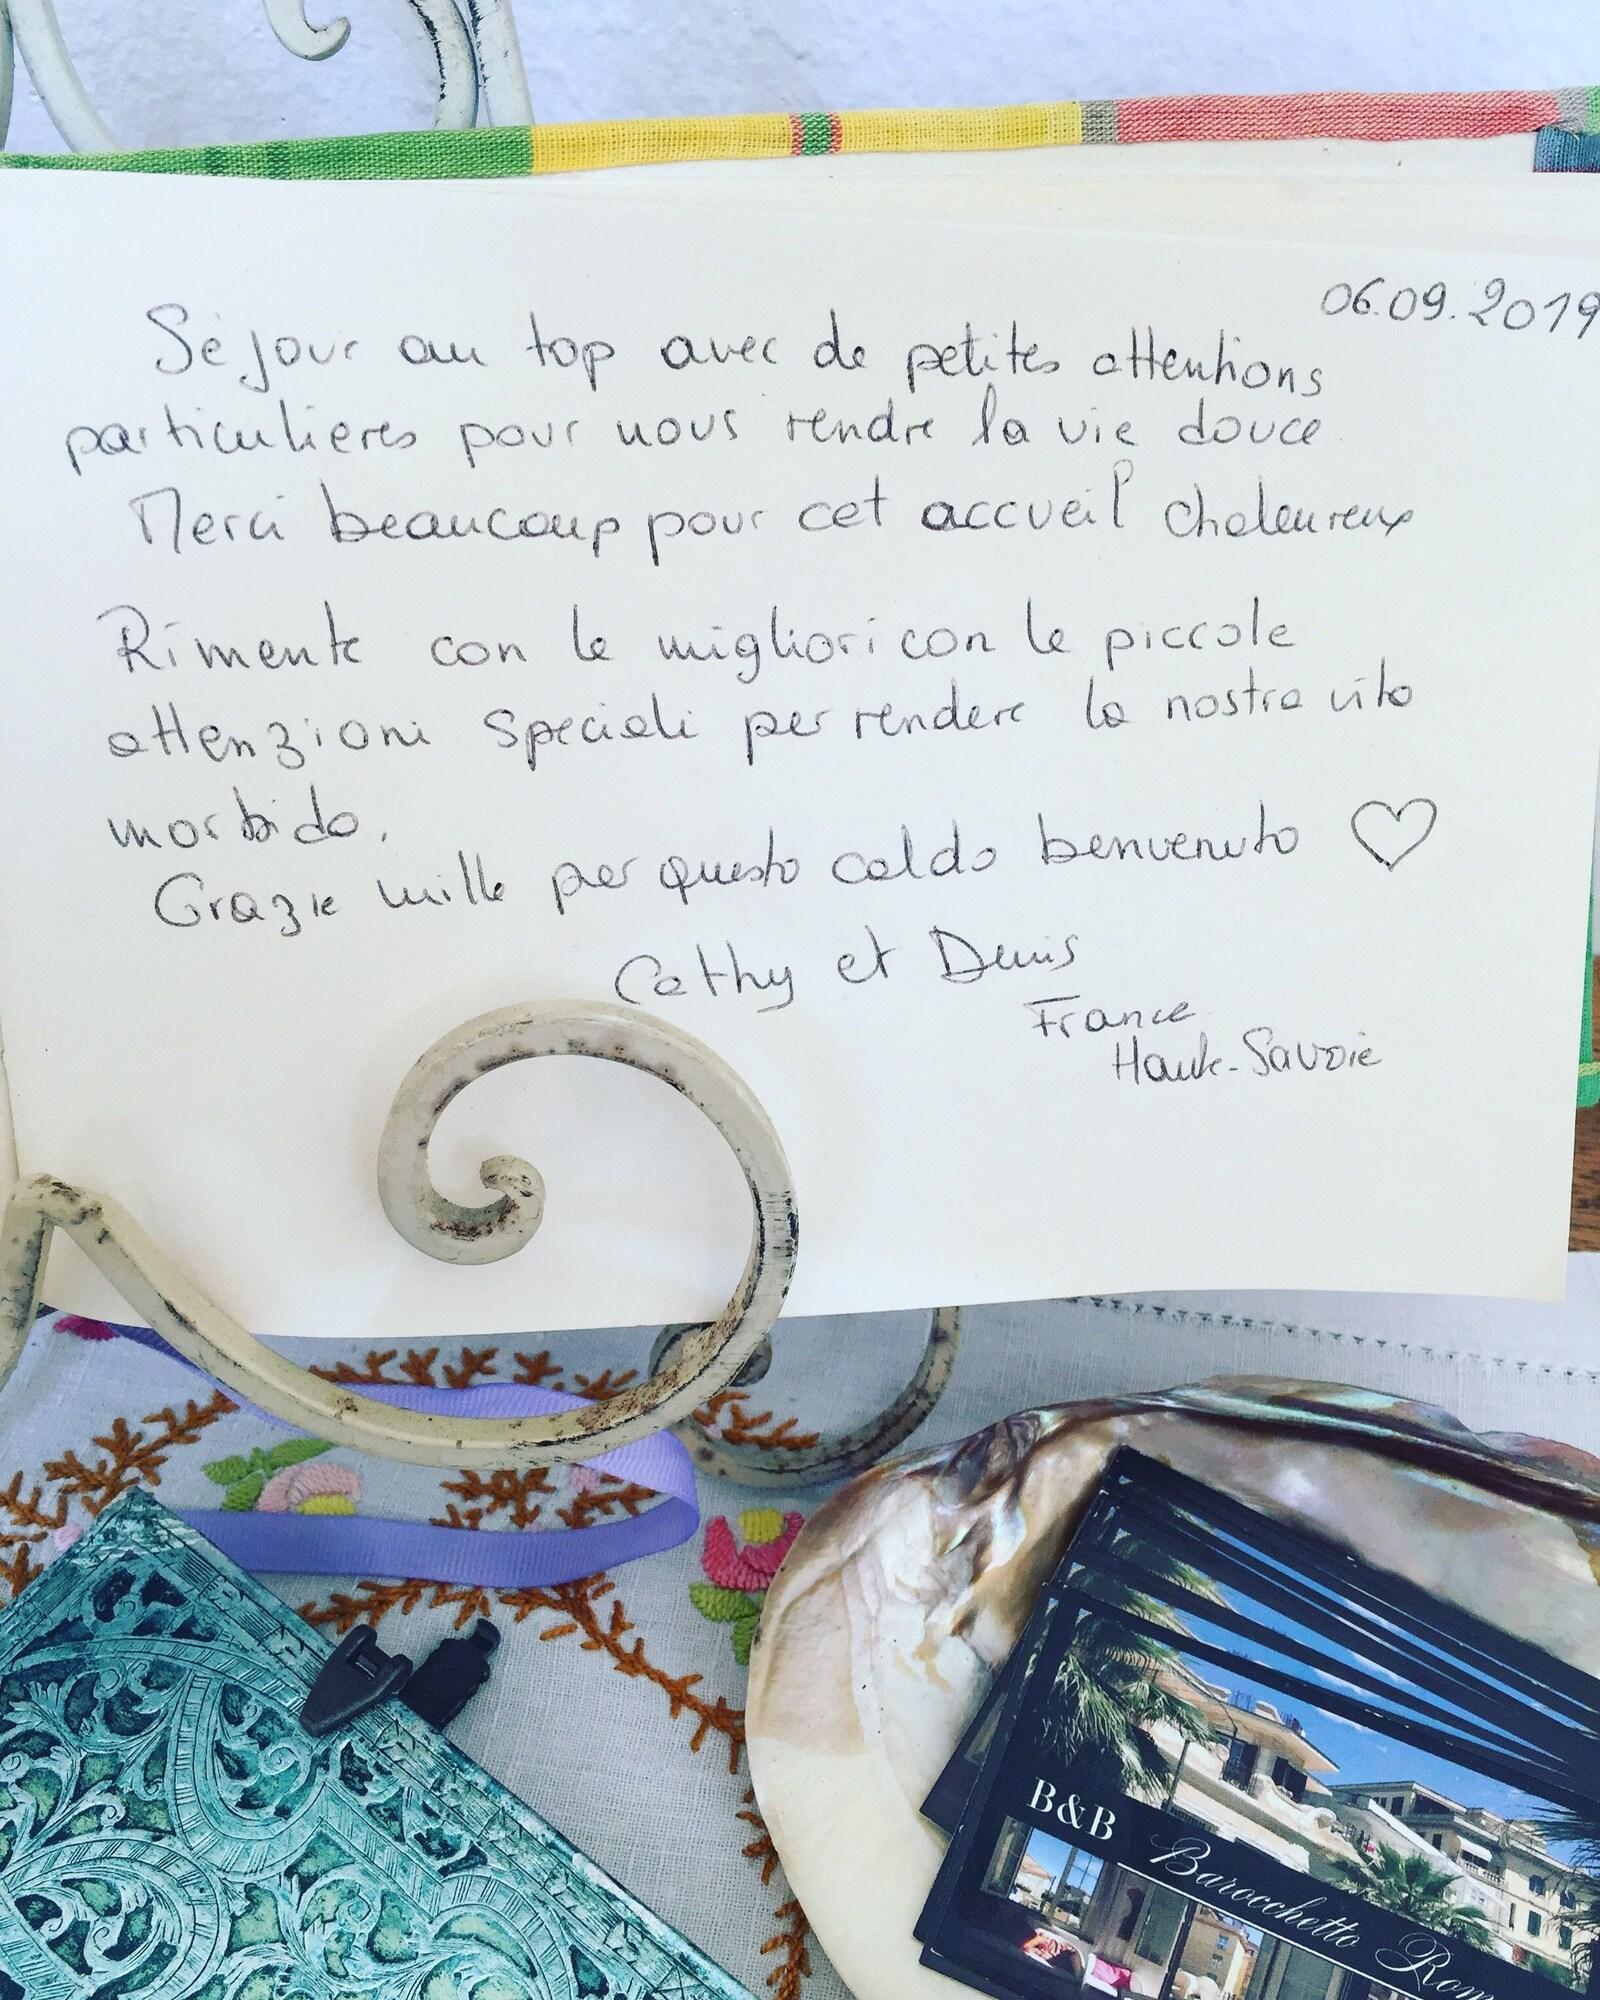 06.09.2019
Séjour au top avec de petites attentions
particulières pour nous rendre la vie douce
Merci beaucoup pour cet accueil chaleureux
Rimente con le migliori con le piccole
attenzioni speciali per rendere la nostra vita
morbida.
Grazie mille per questo caldo benvenuto ♡
Cathy et Denis
France
Haute-Savoie
B&B
Barocchetto Rom